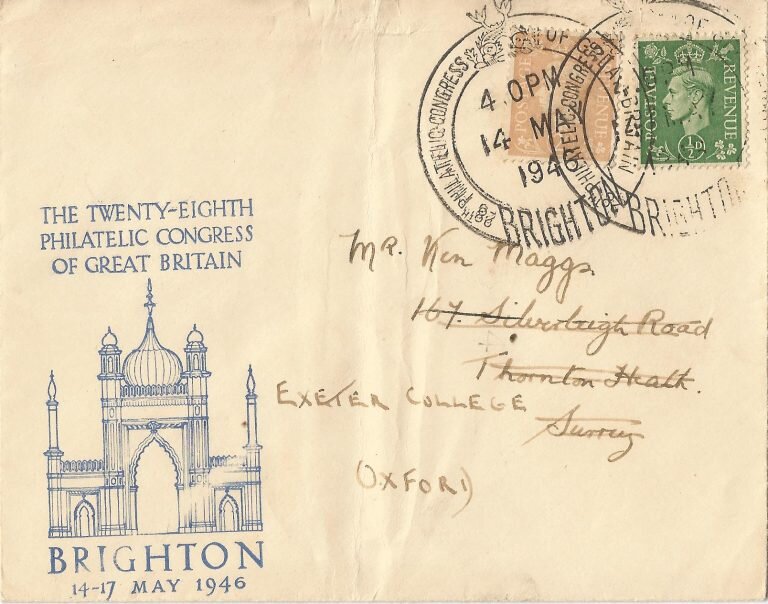 THE TWENTY-EIGHTH
PHILATELIC CONGRESS
OF GREAT BRITAIN
BRIGHTON
14-17 MAY 1946
28TH PHILATELIC CONGRESS OF GREAT BRITAIN
4.0PM
14 MAY
1946
BRIGHTON
PHILATELIC CONGRESS
BRIGHTON
POSTAGE REVENUE
POSTAGE REVENUE
½D
Mr. Ken Maggs.
167. Silverleigh Road
Thornton Heath.
Surrey
EXETER COLLEGE
(OXFORD)